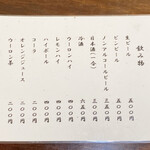 飲み物
生ビール 五五〇円
ビンビール 五五〇円
ノンアルコールビール 三五〇円
日本酒(一合) 三五〇円
冷酒 六五〇円
ウーロンハイ 四四〇円
レモンハイ 四四〇円
ハイボール 四四〇円
コーラ 二〇〇円
オレンジジュース 二〇〇円
ウーロン茶 二〇〇円